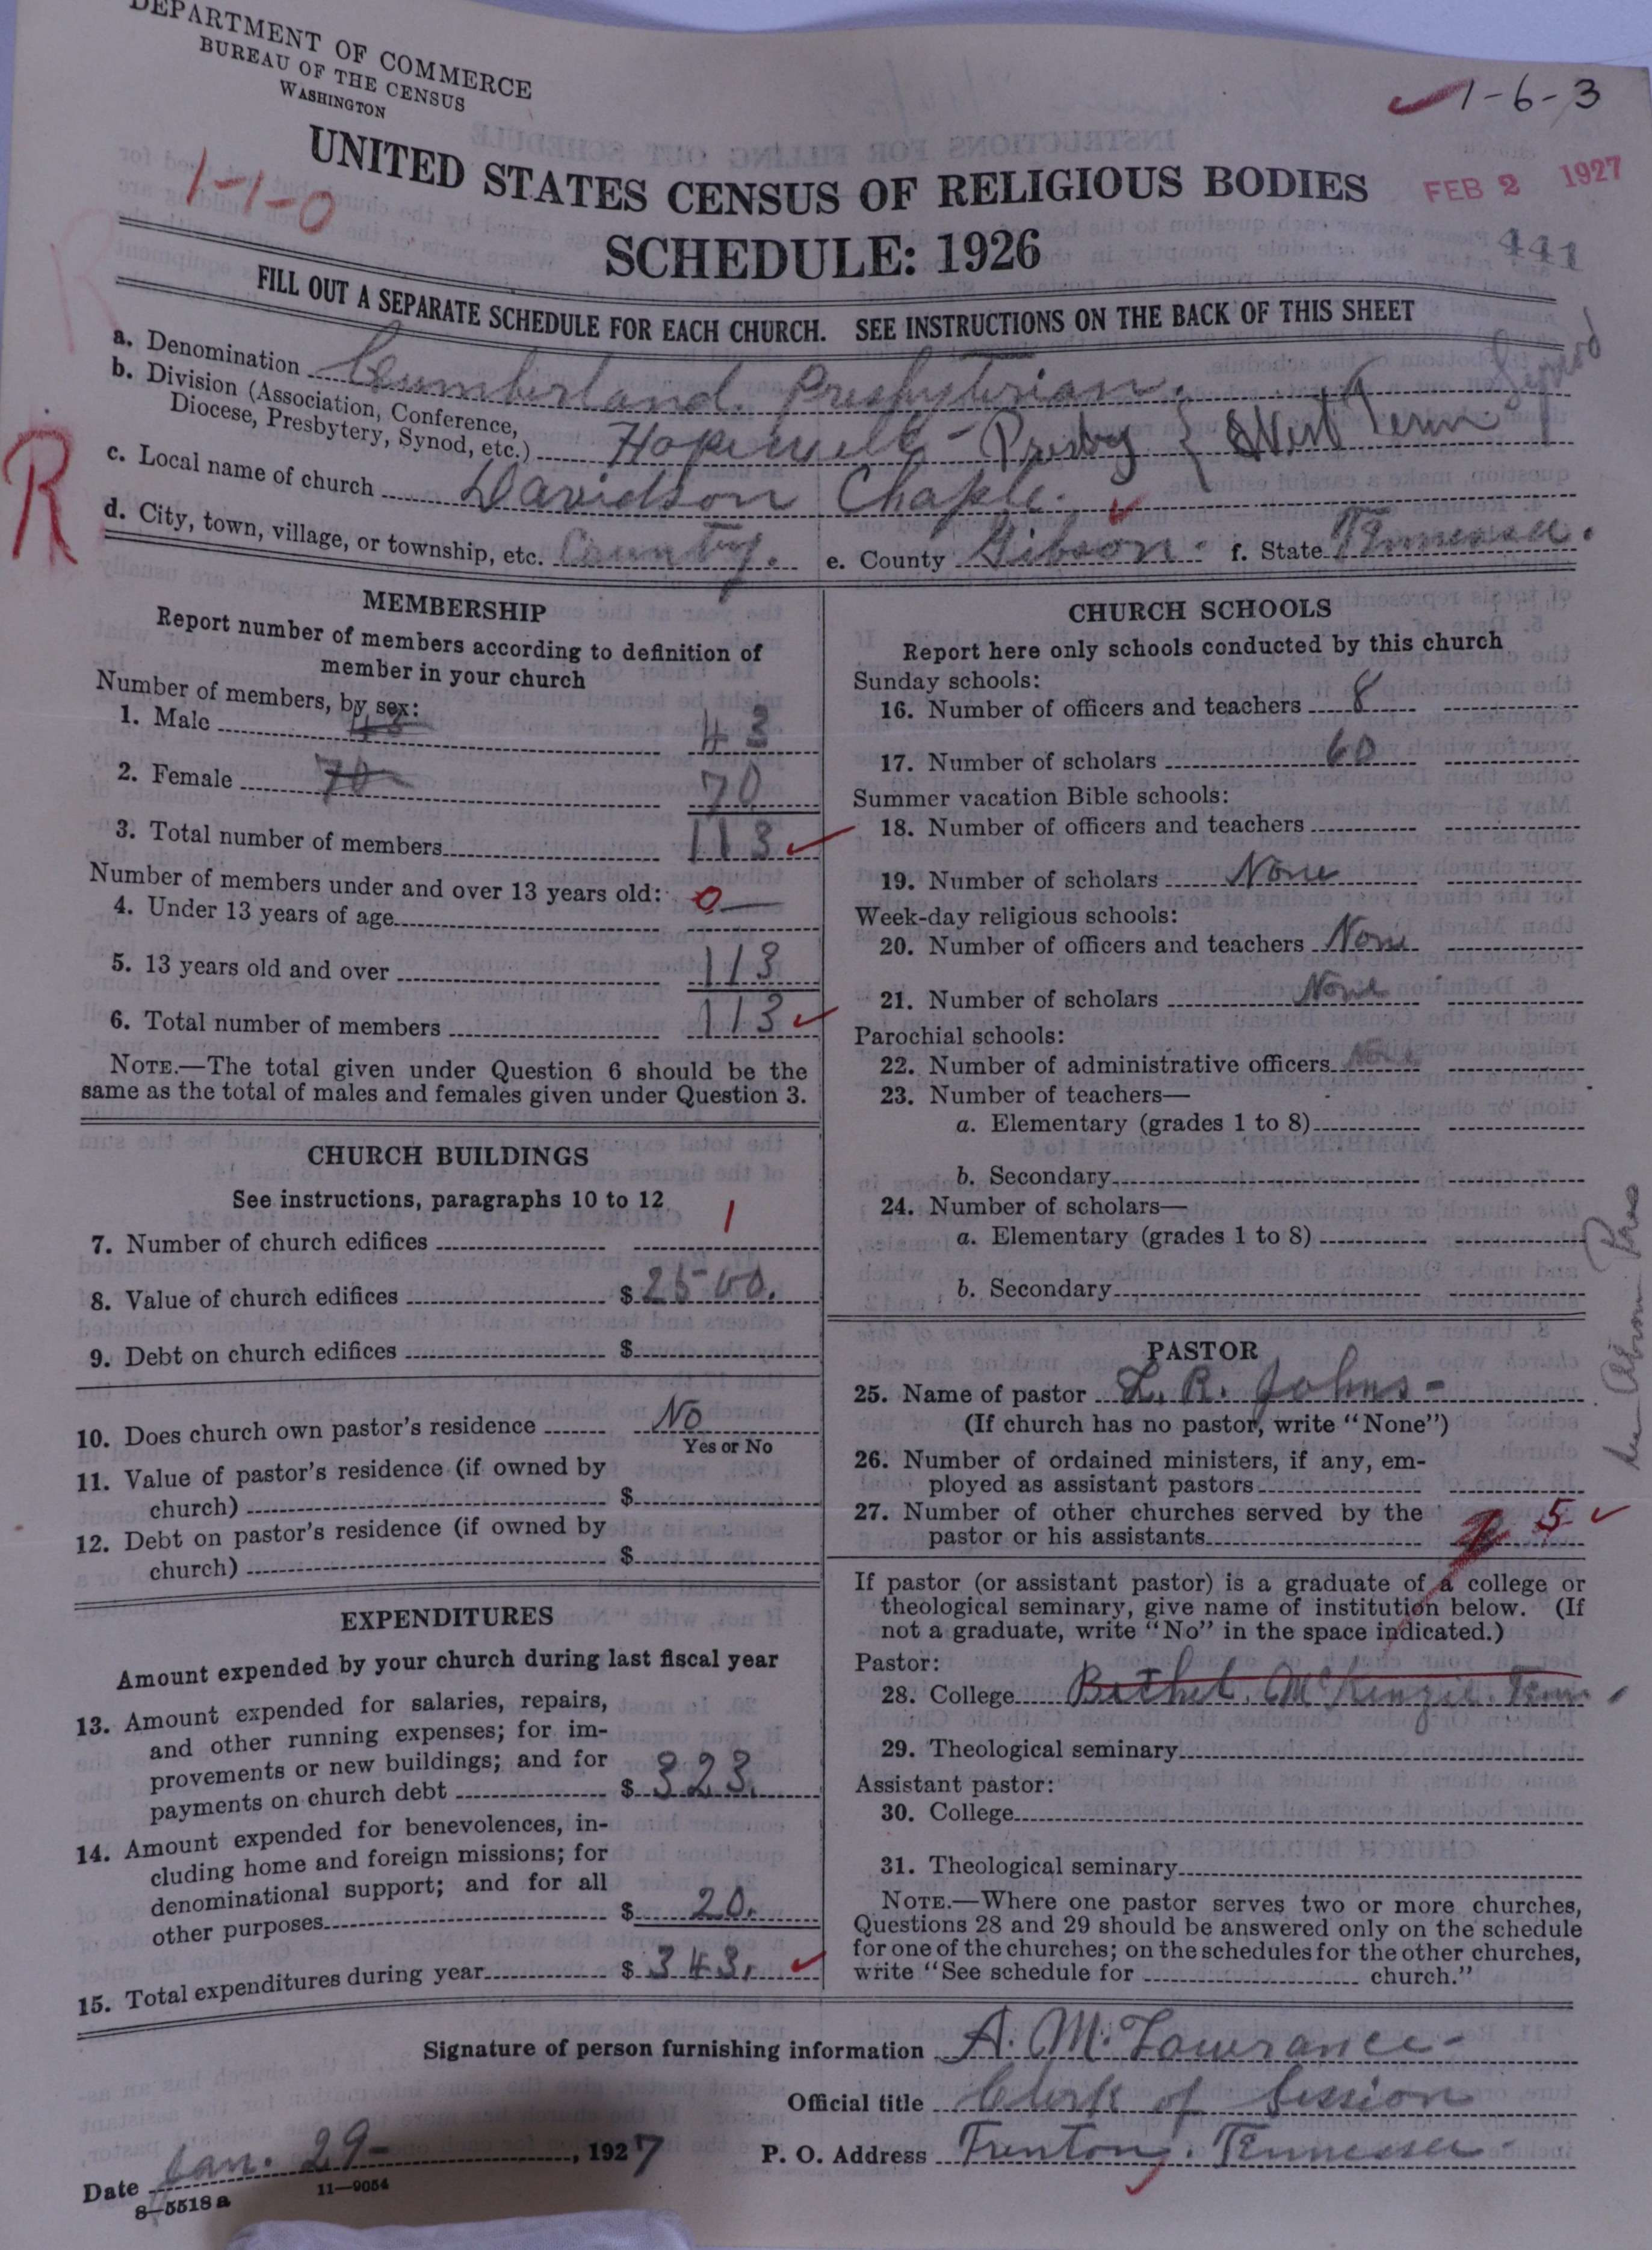 DEPARTMENT OF COMMERCE
BUREAU OF THE CENSUS
WASHINGTON
1-6-3
UNITED STATES CENSUS OF RELIGIOUS BODIES
FEB 2 1927
1-1-0
SCHEDULE: 1926
441
R
FILL OUT A SEPARATE SCHEDULE FOR EACH CHURCH. SEE INSTRUCTIONS ON THE BACK OF THIS SHEET
a. Denomination Cumberland. Presbyterian.
b. Division (Association, Conference, Diocese, Presbytery, Synod, etc.) Hopewell - Presby } West Tenn Synod
R
c. Local name of church Davidson Chaple.
d. City, town, village, or township, etc. County. e. County Gibson. f. State Tennessee.
MEMBERSHIP
Report number of members according to definition of
member in your church
Number of members, by sex:
1. Male 43 43
2. Female 70 70
3. Total number of members 113
Number of members under and over 13 years old:
4. Under 13 years of age 0
5. 13 years old and over 113
6. Total number of members 113
NOTE.—The total given under Question 6 should be the
same as the total of males and females given under Question 3.
CHURCH BUILDINGS
See instructions, paragraphs 10 to 12
7. Number of church edifices 1
8. Value of church edifices $ 2500.
9. Debt on church edifices $
10. Does church own pastor's residence No
Yes or No
11. Value of pastor's residence (if owned by
church) $
12. Debt on pastor's residence (if owned by
church) $
EXPENDITURES
Amount expended by your church during last fiscal year
13. Amount expended for salaries, repairs,
and other running expenses; for im-
provements or new buildings; and for
payments on church debt $ 323.
14. Amount expended for benevolences, in-
cluding home and foreign missions; for
denominational support; and for all
other purposes $ 20.
15. Total expenditures during year $ 343.
CHURCH SCHOOLS
Report here only schools conducted by this church
Sunday schools:
16. Number of officers and teachers 8
17. Number of scholars 60
Summer vacation Bible schools:
18. Number of officers and teachers
19. Number of scholars None
Week-day religious schools:
20. Number of officers and teachers None
21. Number of scholars None
Parochial schools:
22. Number of administrative officers None
23. Number of teachers—
a. Elementary (grades 1 to 8)
b. Secondary
24. Number of scholars—
a. Elementary (grades 1 to 8)
b. Secondary
PASTOR
25. Name of pastor L. R. Johns -
(If church has no pastor, write "None")
26. Number of ordained ministers, if any, em-
ployed as assistant pastors
27. Number of other churches served by the
pastor or his assistants 5
If pastor (or assistant pastor) is a graduate of a college or
theological seminary, give name of institution below. (If
not a graduate, write "No" in the space indicated.)
Pastor:
28. College Bethel. McKenzie. Tenn.
29. Theological seminary
Assistant pastor:
30. College
31. Theological seminary
NOTE.—Where one pastor serves two or more churches,
Questions 28 and 29 should be answered only on the schedule
for one of the churches; on the schedules for the other churches,
write "See schedule for church."
Signature of person furnishing information A. M. Lowrance -
Official title Clerk of Session
Date Jan. 29 - , 1927 P. O. Address Trenton, Tennessee -
8—5518a 11—9054